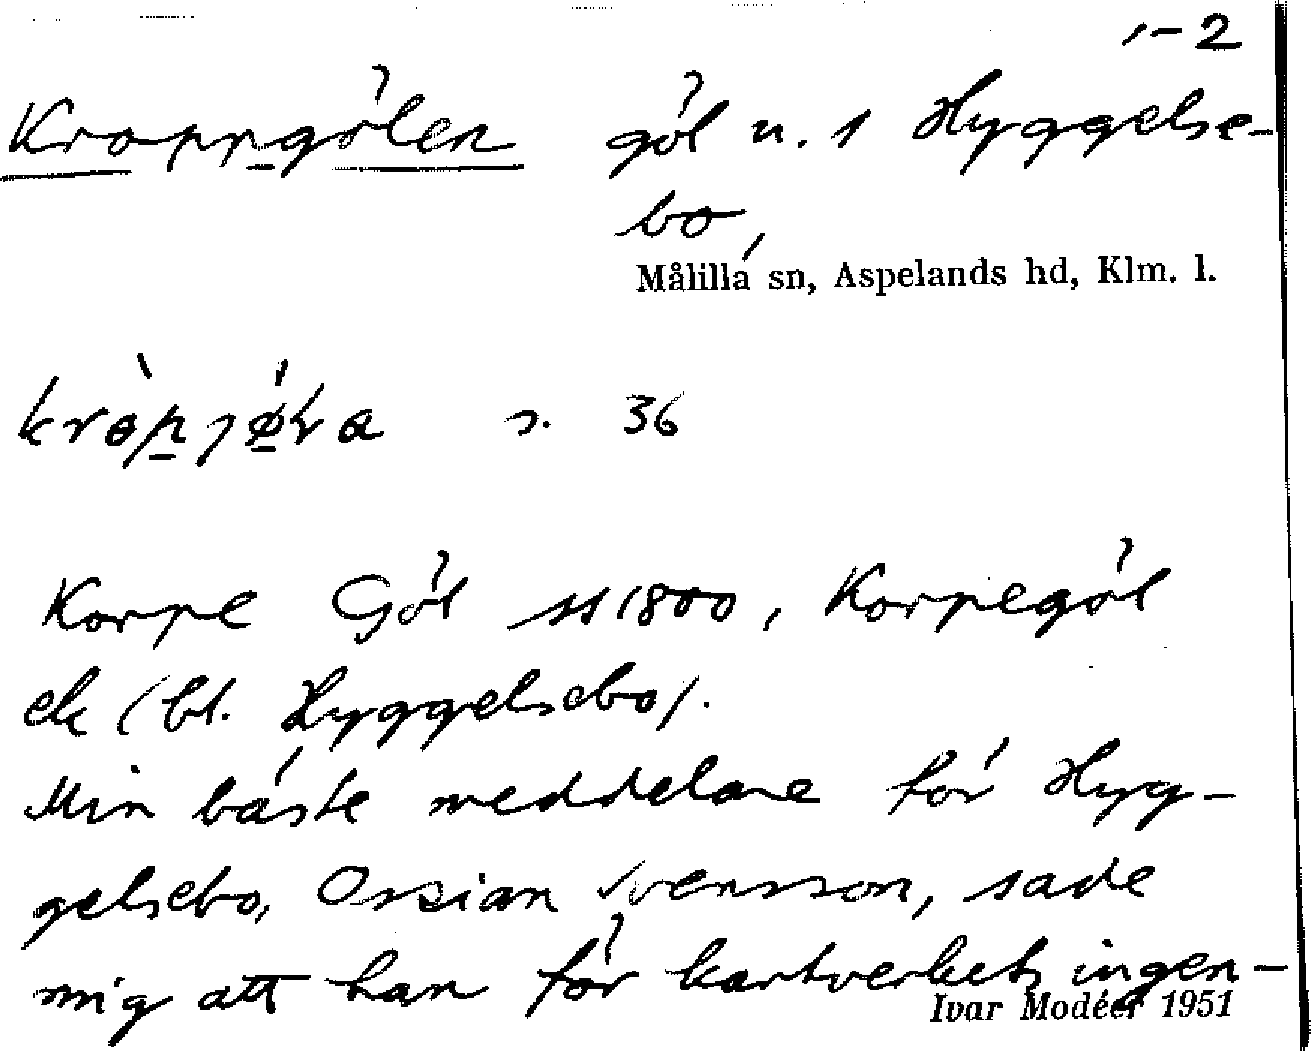 1-2
Kroppgölen göl n. i Hyggelse-
bo,
Målilla sn, Aspelands hd, Klm. l.
s. 36
Korpe Göl ss 1800, Korpegöl
ek (bl. Hyggelsebo).
Min bäste meddelare för Hyg-
gelsebo, Ossian Svensson, sade
mig att han för kartverkets ingen-
Ivar Modéer 1951